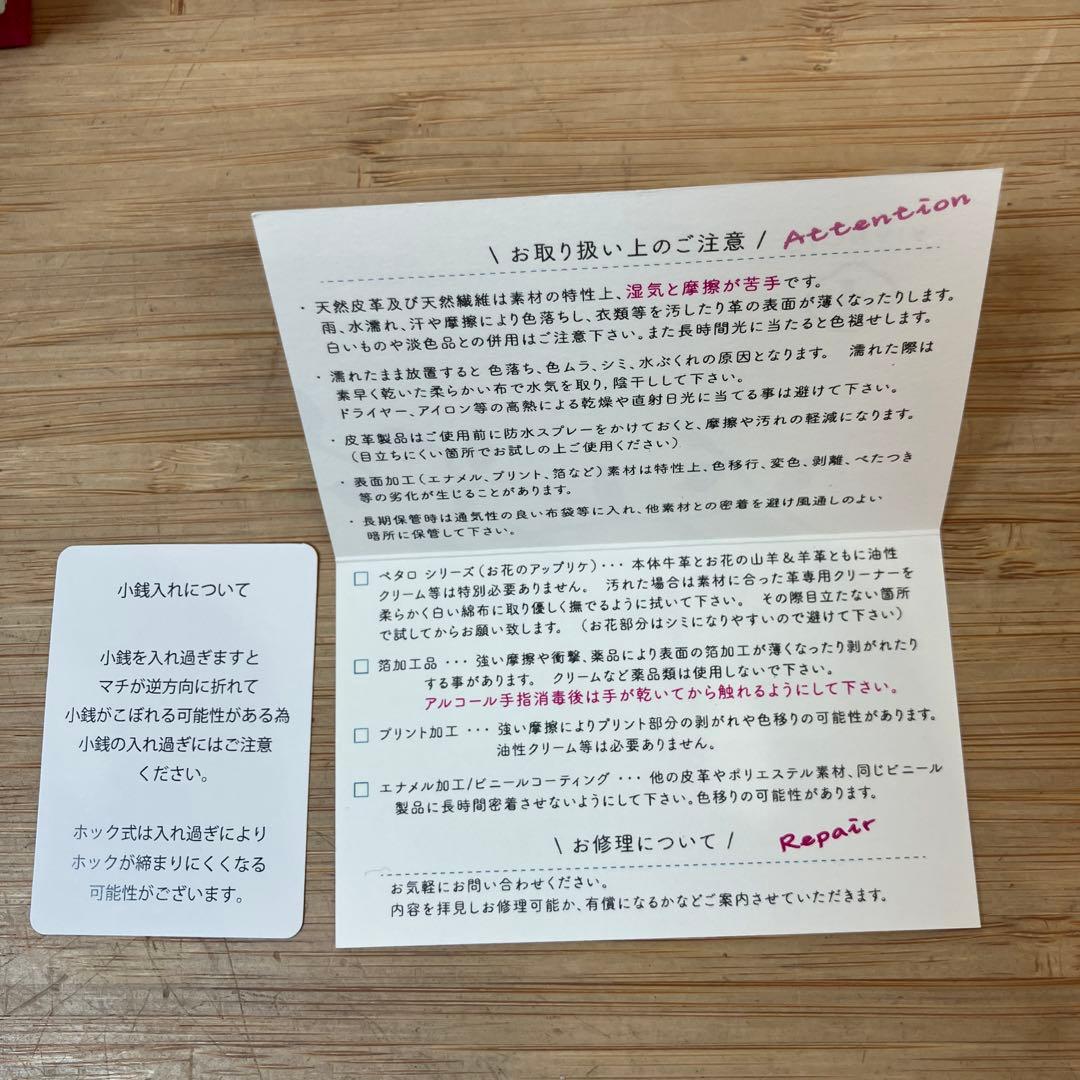 小銭入れについて
小銭を入れ過ぎますと
マチが逆方向に折れて
小銭がこぼれる可能性がある為
小銭の入れ過ぎにはご注意
ください。
ホック式は入れ過ぎにより
ホックが締まりにくくなる
可能性がございます。
\ お取り扱い上のご注意 / Attention
・天然皮革及び天然繊維は素材の特性上、湿気と摩擦が苦手です。
雨、水濡れ、汗や摩擦により色落ちし、衣類等を汚したり革の表面が薄くなったりします。
白いものや淡色品との併用はご注意下さい。また長時間光に当たると色褪せします。
・濡れたまま放置すると 色落ち、色ムラ、シミ、水ぶくれの原因となります。 濡れた際は
素早く乾いた柔らかい布で水気を取り，陰干しして下さい。
ドライヤー、アイロン等の高熱による乾燥や直射日光に当てる事は避けて下さい。
・皮革製品はご使用前に防水スプレーをかけておくと、摩擦や汚れの軽減になります。
（目立ちにくい箇所でお試しの上ご使用ください）
・表面加工（エナメル、プリント、箔など）素材は特性上、色移行、変色、剥離、べたつき
等の劣化が生じることがあります。
・長期保管時は通気性の良い布袋等に入れ、他素材との密着を避け風通しのよい
暗所に保管して下さい。
□ ペタロ シリーズ（お花のアップリケ）・・・ 本体牛革とお花の山羊＆羊革ともに油性
クリーム等は特別必要ありません。 汚れた場合は素材に合った革専用クリーナーを
柔らかく白い綿布に取り優しく撫でるように拭いて下さい。 その際目立たない箇所
で試してからお願い致します。 （お花部分はシミになりやすいので避けて下さい）
□ 箔加工品 ・・・ 強い摩擦や衝撃、薬品により表面の箔加工が薄くなったり剥がれたり
する事があります。 クリームなど薬品類は使用しないで下さい。
アルコール手指消毒後は手が乾いてから触れるようにして下さい。
□ プリント加工 ・・・ 強い摩擦によりプリント部分の剥がれや色移りの可能性があります。
油性クリーム等は必要ありません。
□ エナメル加工/ビニールコーティング ・・・ 他の皮革やポリエステル素材、同じビニール
製品に長時間密着させないようにして下さい。色移りの可能性があります。
\ お修理について / Repair
お気軽にお問い合わせください。
内容を拝見しお修理可能か、有償になるかなどご案内させていただきます。